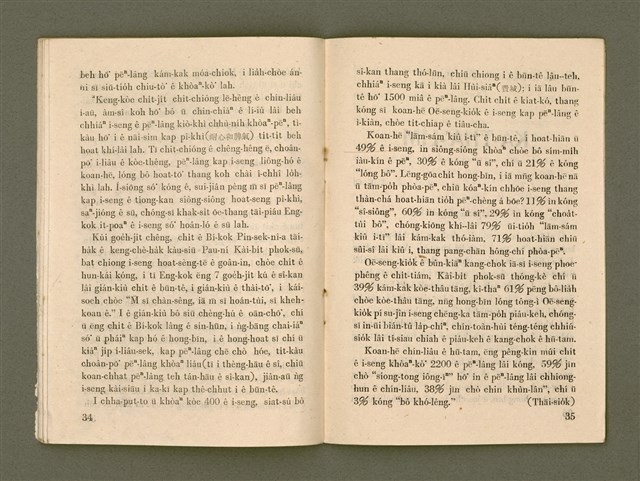 beh hō͘ pēⁿ-lâng kám-kak móa-chiok, i lia̍h-chòe án-
ni sī siū-tio̍h chiu-tô͘ ê khòaⁿ-kò͘ lah.
"Keng-kòe chit-ji̍t chit-chióng lē-hêng ê chín-liâu
í-āu, ám-sî koh hō͘ bó ū chin-chiàⁿ ê lí-iû lâi beh
chhiáⁿ i-seng ê pēⁿ-lâng kiò-khì chhù-nih khòaⁿ-pēⁿ, ti-
kāu hō͘ i ê nāi-sim kap pî-khì(耐心和脾氣) tit-tit beh
hoat khí-lâi lah. Tī chit-chióng ê chêng-hêng ê, choân-
pō͘ i-liâu ê kòe-thêng, pēⁿ-lâng kap i-seng lióng-hó ê
koan-hē, lóng bô hoat-tō͘ thang koh chài i-chhî lo̍h-
khì lah. I-siông só͘ kóng ê, sui-jiân pèng m̄ sī pēⁿ-lâng
kap i-seng ê tiong-kan siông-siông hoat-seng pî-khì,
saⁿ-jióng ê sū, chóng-sī khak-si̍t óe-thang tāi-piáu Eng-
kok it-poaⁿ ê i-seng só͘ hoân-ló ê sū lah.
Kúi goe̍h-ji̍t chêng, chi̍t ê Bí-kok Pin-sek-ni-a tāi-
ha̍k ê keng-chè-ha̍k káu-siū Pau-nî Kái-bit phok-sū,
bat chiong i-seng hoat-sèng-tê ê goân-in, chòe chi̍t ê
hun-kái kóng, i tī Eng-kok ēng 7 goe̍h-ji̍t kú ê sî-kan
lâi gián-kiù chit ê būn-tê, i gián-kiù ê thāi-tō͘, i kái-
soeh chòe "M̄ sī chàn-sêng, iā m̄ sī hoán-tùi, sī kheh-
koan ê." I ê gián-kiù bô siū chèng-hú ê oān-chō͘, chí
ū eng chi̍t ê Bí-kok lâng ê sin-hūn, i n̂g-bāng chai-iáⁿ
só͘ ū phái​ⁿ kap hó ê hong-bīn, i ê hong-hoat sī chí ū
kiâⁿ ji̍p i-liâu-sek, kap pēⁿ-lâng chē chò hóe, tit-kâu
choân-pō͘ pēⁿ-lâng khòaⁿ liáu(tī i thèng-hāu ê sî, chiū
koan-chhat pēⁿ-lâng teh tán-hāu ê sî-kan), jiân-āu n̂g
i-seng kái-siāu i ka-kī kap thê-chhut i ê būn-tê.
I chha-put-to ū khòaⁿ kòe 400 ê i-seng, siat-sú bô
34
sî-kan thang thó-lūn, chiū chiong i ê būn-tê lâu-teh,
chhiáⁿ i-seng kā i kià lâi Hùi-siâⁿ(費城); i iā lâi būn-
tê hō͘ 1500 miâ ê pēⁿ-lâng. Chit chi̍t ê kiat-kó, thang
kóng sī koan-hē Oē-seng-kio̍k ê i-seng kap pēⁿ-lâng ê
ì-kiàn, chòe tit-chiap ê tiāu-cha.
Koan-hē "lām-sám kiû i-tī" ê būn-tê, i hoat-hiān ū
49% ê i-seng, in siông-siông khòaⁿ chòe bô sím-mih
iàu-kín ê pēⁿ, 30% ê kóng "ū sî", chí ū 21% ê kóng
"lóng bô". Lēng-gōa chit hong-bīn, i iā mn̄g koan-hē nā
ū tām-po̍h phòa-pēⁿ, chiū kóaⁿ-kín chhōe i-seng thang
thàn-chá hoat-hiān tio̍h pēⁿ-chêng á bōe? 11% in kóng
"sî-siông", 60% in kóng "ū sî", 29% in kóng "choa̍t-
tùi bô", chóng-kiōng khí-lâi 79% ūi-tio̍h "lām-sám
kiû i-tī" lâi kám-kak thó-iàm, 71% hoat-hiān chiū
sûi-sî lâi kiû i, thang pang-chān hông-chí phòa-pēⁿ.
Oē-seng-kio̍k ê būn-kiāⁿ kang-chok iā sī i-seng phoe-
phêng ê chi̍t-tiám. Kái-bit phok-sū thóng-kè chí ū
39% kám-kak kòe-thâu tāng, kî-thaⁿ 61% pēng bô-lia̍h
chòe kòe-thâu tāng, nn̄g hong-bīn lóng tông-ì Oē-seng-
kio̍k pī su-jîn i-seng chêng-ka tām-po̍h piáu-keh, chóng-
sī in-ūi bián-tû la̍p-chîⁿ, chin-toān-hùi téng-téng chhiú-
sio̍k lâi tī-siau chiah ê piáu-keh ê kang-chok ê hū-tam.
Koan-hē chín-liâu ê hū-tam, ēng pêng-kin múi chi̍t
ê i-seng khòaⁿ-kò͘ 2200 ê pēⁿ-lâng lâi kóng, 59% jīn
chò "siong-tong iông-īⁿ" hō͘ in ê pēⁿ-lâng lâi chhiong-
hun ê chín-liâu, 38% jīn chò chin khùn-lân", chí ū
3% kóng "bô khó-lêng." (Thāi-sio̍k)
35